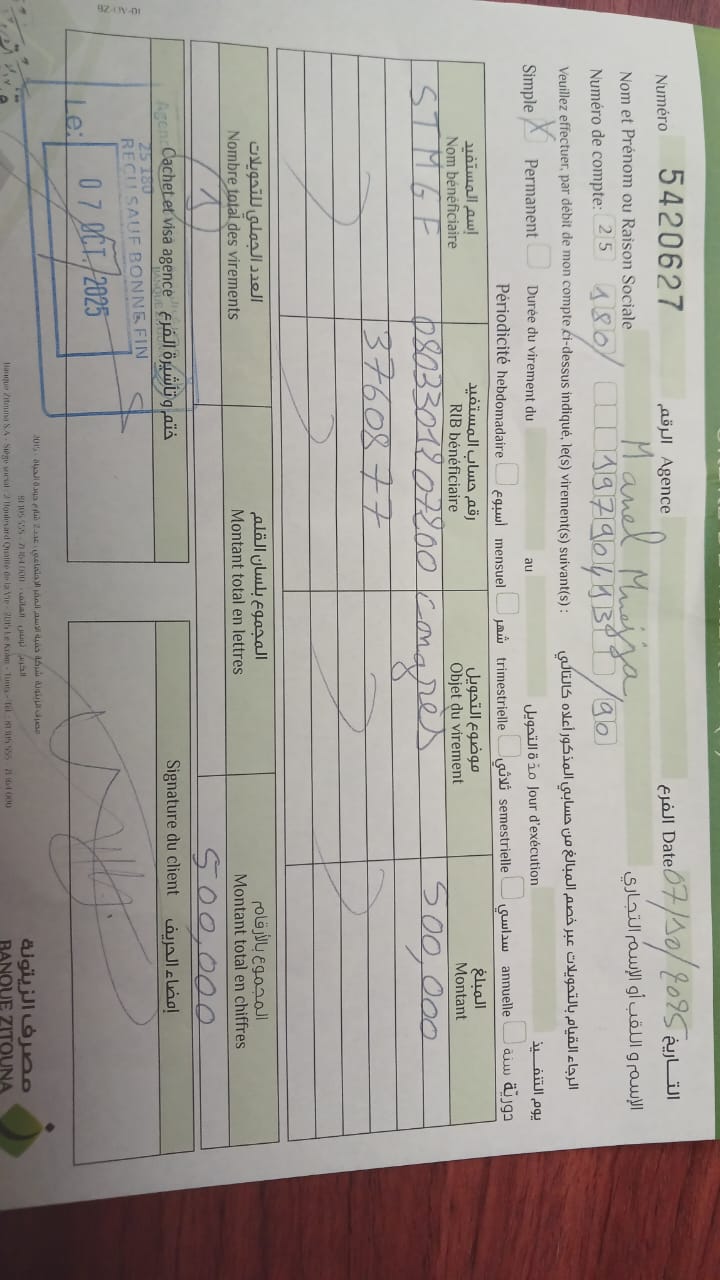 Numéro 5420627 الرقم Agence الفرع Date 07/10/2025 التاريخ
Nom et Prénom ou Raison Sociale Manel الإسم و اللقب أو الإسم التجاري
Numéro de compte: 25 180 /90
Veuillez effectuer, par débit de mon compte ci-dessus indiqué, le(s) virement(s) suivant(s) : الرجاء القيام بالتحويلات عبر خصم المبالغ من حسابي المذكور أعلاه كالتالي
Simple X Permanent Durée du virement du au مدّة التحويل Jour d'exécution يوم التنفيذ
Périodicité hebdomadaire أسبوع mensuel شهر trimestrielle ثلاثي semestrielle سداسي annuelle سنة دوريّة
إسم المستفيد رقم حساب المستفيد موضوع التحويل المبلغ
Nom bénéficiaire RIB bénéficiaire Objet du virement Montant
STMGF 0803301207200 Congrès 500,000
3760877
العدد الجملي للتحويلات المجموع بلسان القلم المجموع بالأرقام
Nombre total des virements Montant total en lettres Montant total en chiffres
1 500,000
Cachet et visa agence ختم و تأشيرة الفرع Signature du client إمضاء الحريف
25 180
RECU SAUF BONNE FIN
Le: 07 OCT. 2025
مصرف الزيتونة
BANQUE ZITOUNA